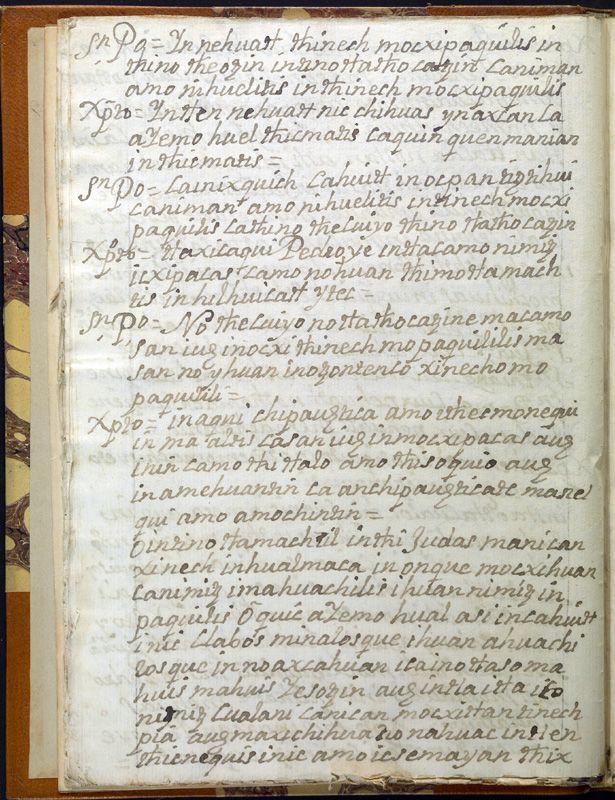 Sn Po = Yn nehuatl, thinech mocxipaquilis in
thino theozin inzino tlathocazint Caniman
amo nihuelitis inthinech mocxipaquilis
Xpto = Yntlen nehuatl nic chihuas ynaxcan ca
aZemo huel thicmatis caquin quenmanian
inthicmatis =
Sn Po = Caixquich Cahuitl in ocpanzizihui
caniman amo nihuelitis inzinech mocxi
paquilis cathino thecuiyo thino tlathocazin
Xpto = Ytlaxicaqui Pedro ye intlacamo nimiz
icxipacas Camo nohuan thimotlamach
tis in hilhuicatl Ytec =
Sn Po = No thecuiyo notlathocazine macamo
san iuq inocxi thinech mopaquililis ma
san no yhuan inozonteco xinechomo
paquilili =
Xpto = in aqui chipauzica amo ithec monequi
in ma altis casan iuq inmocxipacas auq
ihin camo thitlalo amo thisoquio auq
in amehuanzin ca anchipauzicate manel
qui amo amochinzin =
O inzino tlamachtil inthi Judas manican
xinech inhualmaca in onque mocxihuan
Canimiz imahuachilis ihuan nimiz in
paquilis O quic aZemo hual asi incahuitl
inic Clabos minalosque ihuan ahuachi
losque in noaxcahuan icainotlasoma
huis mahuis Zesozin auq intla itla ico
nimiz Cualani canican mocxitlanzinech
pia auq maxichihua zionahuac inzlen
thicnequis inic amo icsemayan thix